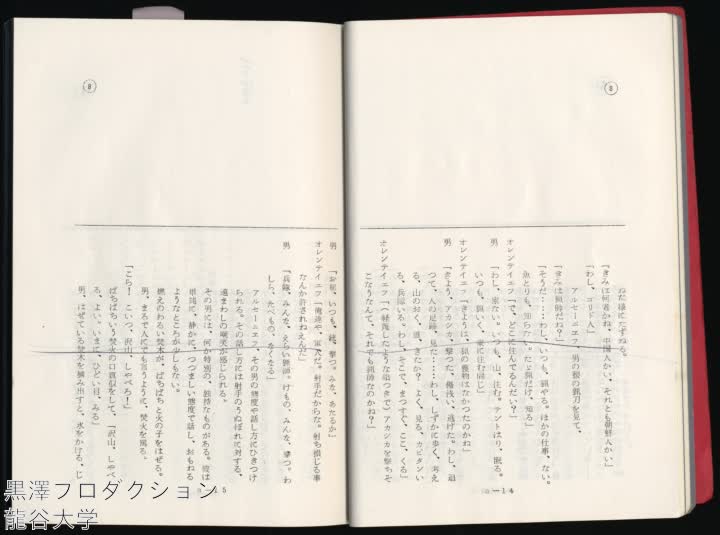 8
ねだ様にたずねる。
「きみは何者かね、中国人かい、それとも朝鮮人かい」
「わし、ゴリド人」
アルセーニエフ、男の銀の猟刀を見て、
「きみは猟師だね?」
「そうだ……わし、いつも、猟やる。ほかの仕事、ない。
魚とりも、知らない。ただ猟だけ、知る」
オレンテイエフ「で、どこに住んでるんだい?」
男「わし、家ない。いつも、山、住む。テントはり、眠る。
いつも、猟いく、家に住む同じ」
オレンテイエフ「きょうは、猟の獲物はなかったのかね」
男「きよう、アカシカ、撃つた、傷浅い、逃げた。わし、追
つて、人の足跡、見た……わし、しずかに歩く、考え
る。山のおく、誰、きたか?よく、見る、カピタンい
る、兵隊いる。わし、そこで、まつすぐ、ここ、くる」
オレンテイエフ「(軽蔑したような佁つきで)アカシカを撃ちそ
こなうなんて、それでも猟師なのかね?」
G—14
8
男「お前、いつも、銃、撃つ。みな、あたるか」
オレンテイエフ「俺達や、軍人だ。射手だからな。射ち損じる事
なんか許されねえんだ」
男「兵隊、みんな、えらい猟師。けもの、みんな、撃つ。わ
しら、たべもの、なくなる」
アルセーニエフ、その男の態度や話し方にひきつけ
られる。その話し方には射手のうぬぼれに対する、
遠まわしの嘲笑が感じられる。
その男には、何か特別の、独特なものがある。彼は
単純に、静かに、つつましい態度で話し、おもねる
ようなところが少しもない。
燃えのわるい焚木が、ぱちぱちと火の子をはぜる。
男、まるで人にでも言うように、焚火を罵る。
「こら!こいつ、沢山、しやべる!」
ぱちぱちいう焚火の口真似をして、「沢山、しやべ
る、よい。いまに、ひどい目、みる」
男、はぜている焚木を摘み出すと、水をかける。じ
G—15
黒澤プロダクション
龍谷大学